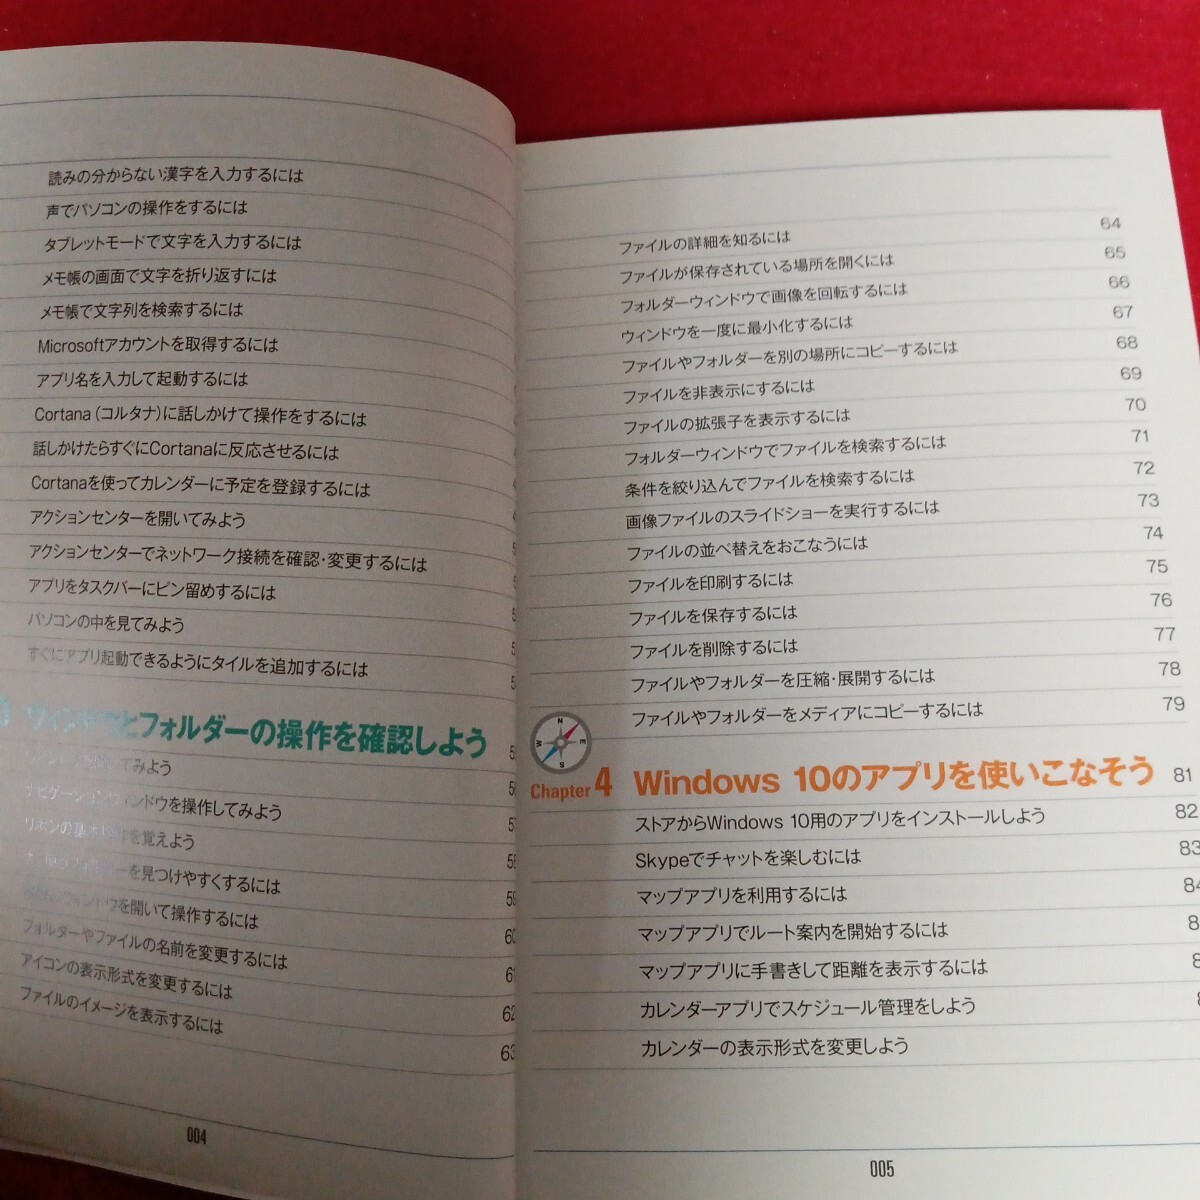 読みの分からない漢字を入力するには
声でパソコンの操作をするには
タブレットモードで文字を入力するには
メモ帳の画面で文字を折り返すには
メモ帳で文字列を検索するには
Microsoftアカウントを取得するには
アプリ名を入力して起動するには
Cortana（コルタナ）に話しかけて操作をするには
話しかけたらすぐにCortanaに反応させるには
Cortanaを使ってカレンダーに予定を登録するには
アクションセンターを開いてみよう
アクションセンターでネットワーク接続を確認・変更するには
アプリをタスクバーにピン留めするには
パソコンの中を見てみよう
すぐにアプリ起動できるようにタイルを追加するには
3 ウィンドウとフォルダーの操作を確認しよう
てみよう 56
ナビゲーションウィンドウを操作してみよう 57
リボンの基本 を覚えよう 58
ーを見つけやすくするには 59
ウィンドウを開いて操作するには 60
フォルダーやファイルの名前を変更するには 61
アイコンの表示形式を変更するには 62
ファイルのイメージを表示するには 63
004
ファイルの詳細を知るには 64
ファイルが保存されている場所を開くには 65
フォルダーウィンドウで画像を回転するには 66
ウィンドウを一度に最小化するには 67
ファイルやフォルダーを別の場所にコピーするには 68
ファイルを非表示にするには 69
ファイルの拡張子を表示するには 70
フォルダーウィンドウでファイルを検索するには 71
条件を絞り込んでファイルを検索するには 72
画像ファイルのスライドショーを実行するには 73
ファイルの並べ替えをおこなうには 74
ファイルを印刷するには 75
ファイルを保存するには 76
ファイルを削除するには 77
ファイルやフォルダーを圧縮・展開するには 78
ファイルやフォルダーをメディアにコピーするには 79
N E S W
Chapter 4 Windows 10のアプリを使いこなそう 81
ストアからWindows 10用のアプリをインストールしよう 82
Skypeでチャットを楽しむには 83
マップアプリを利用するには 84
マップアプリでルート案内を開始するには
マップアプリに手書きして距離を表示するには
カレンダーアプリでスケジュール管理をしよう
カレンダーの表示形式を変更しよう
005